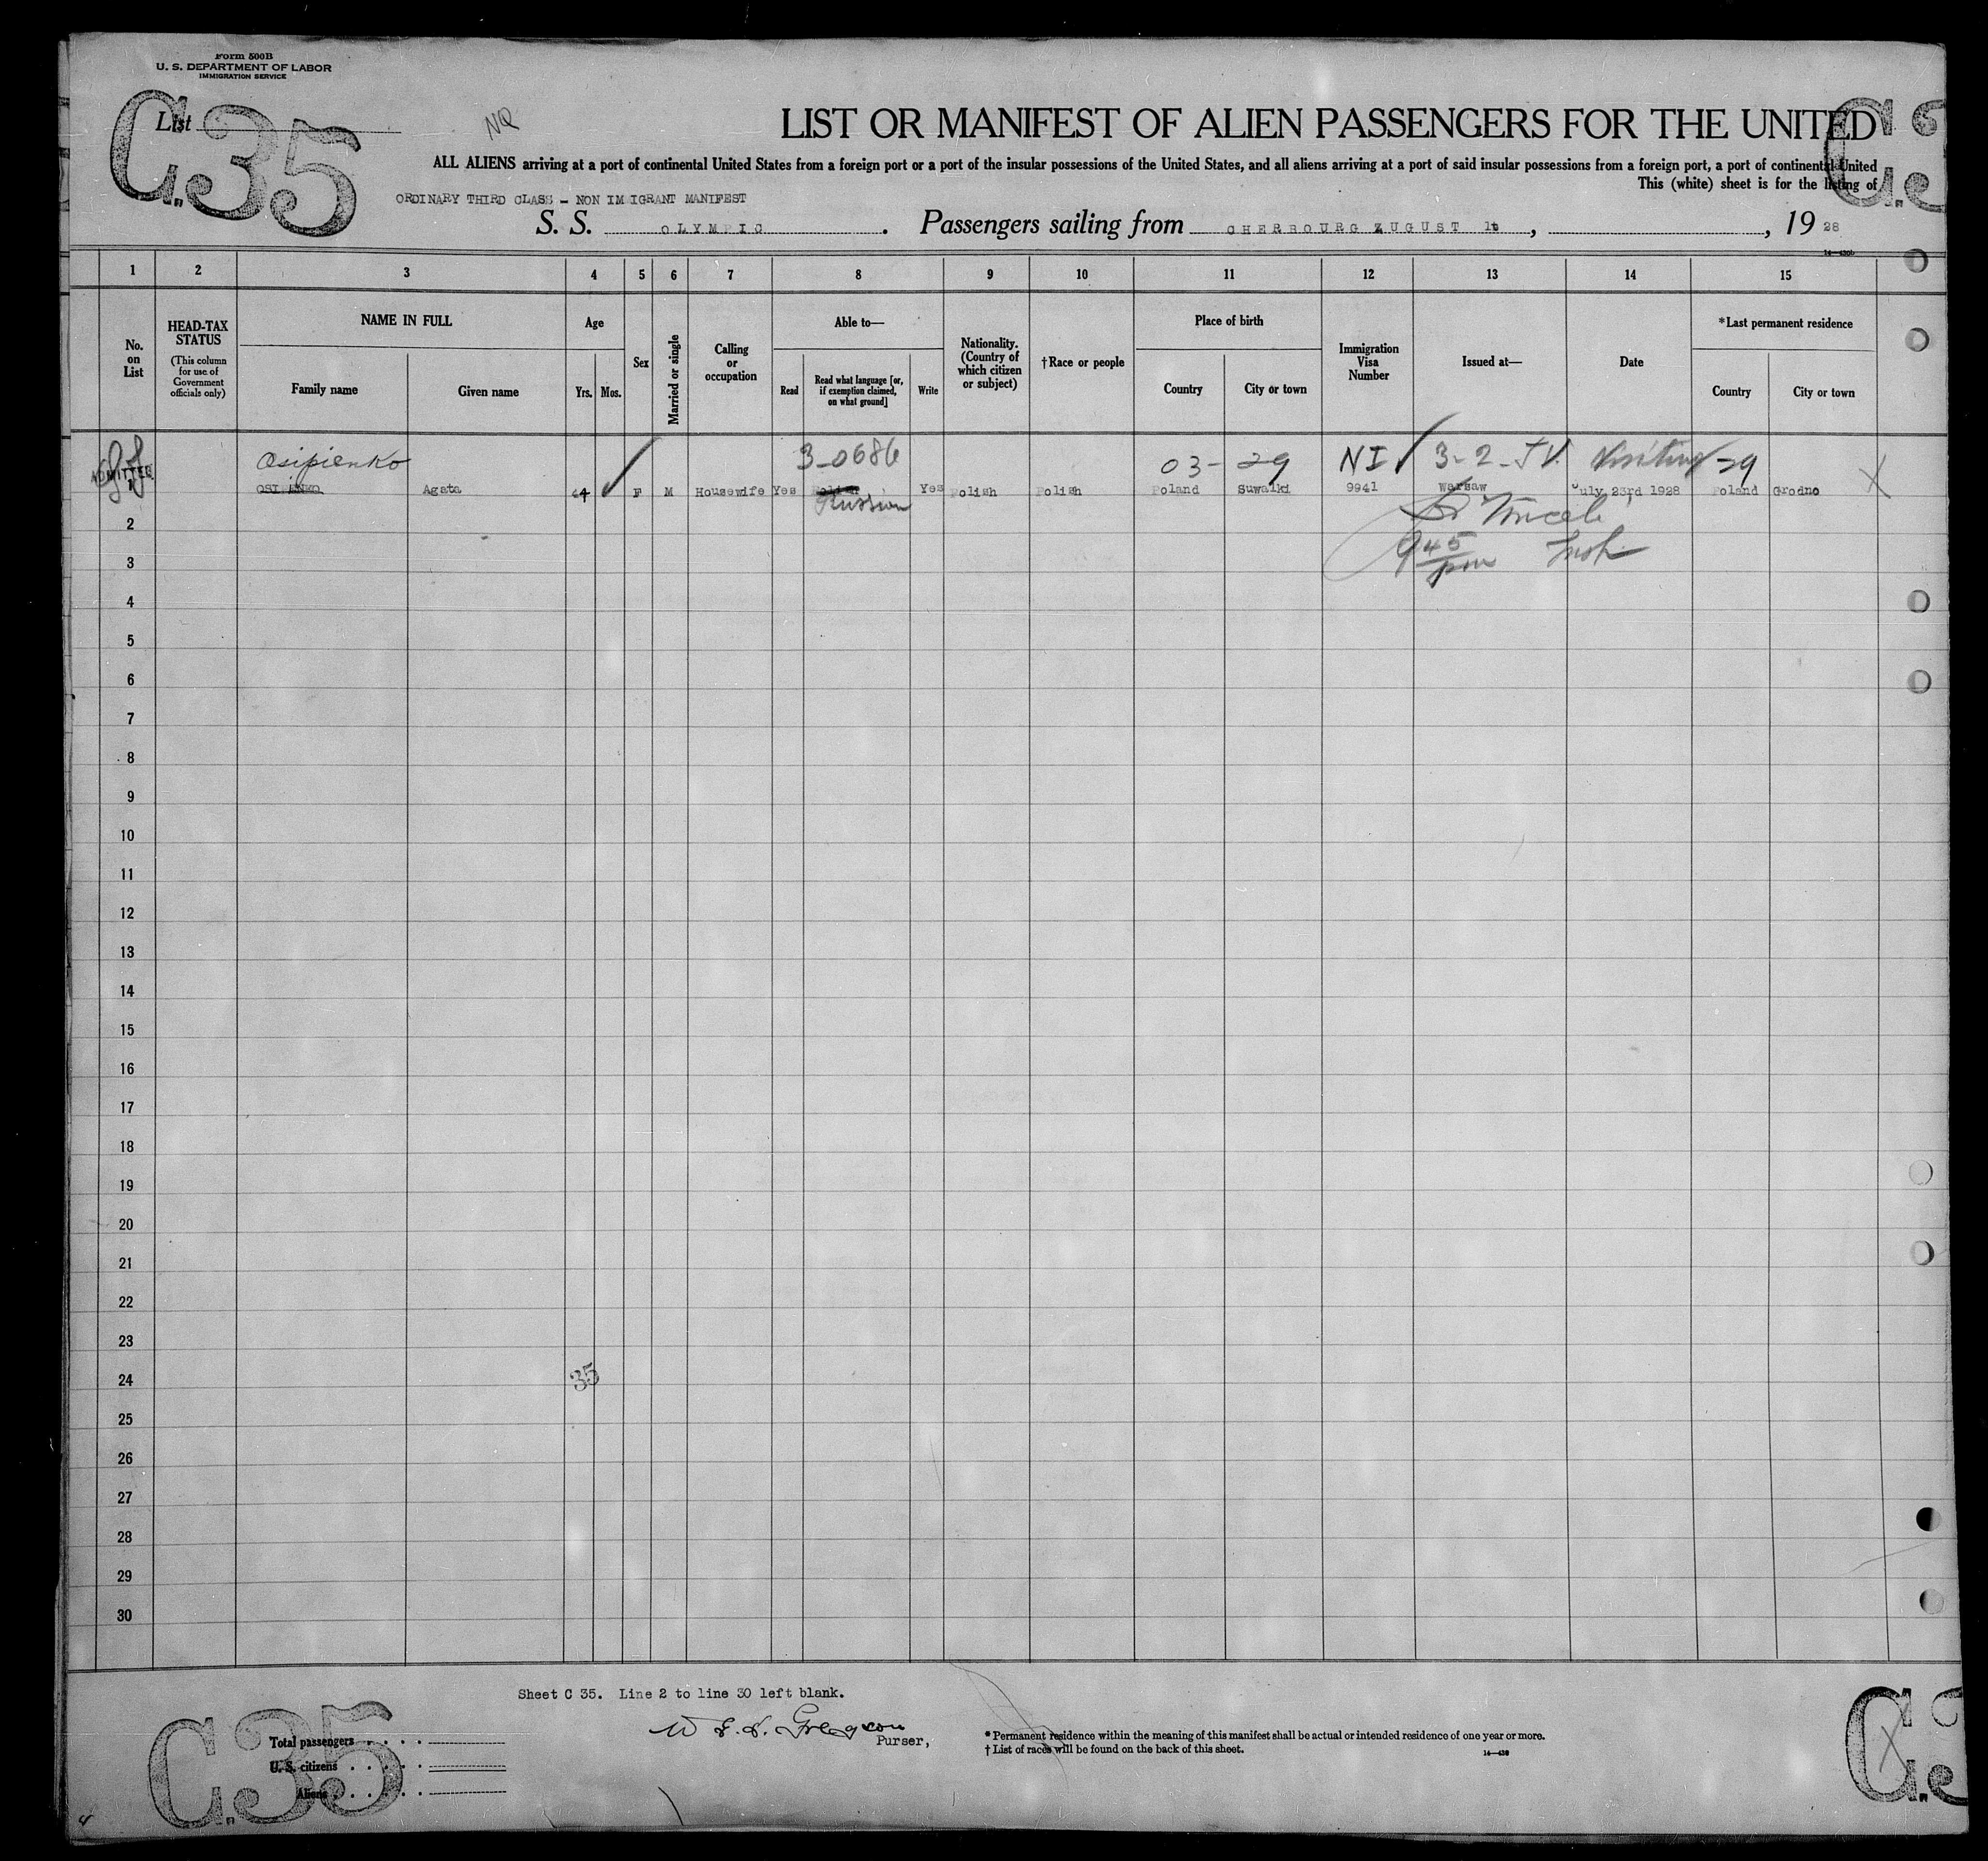 Form 500B
U. S. DEPARTMENT OF LABOR
IMMIGRATION SERVICE
C.35
List
NQ
LIST OR MANIFEST OF ALIEN PASSENGERS FOR THE UNITED
ALL ALIENS arriving at a port of continental United States from a foreign port or a port of the insular possessions of the United States, and all aliens arriving at a port of said insular possessions from a foreign port, a port of continental United
This (white) sheet is for the listing of
ORDINARY THIRD CLASS - NON IM IGRANT MANIFEST
S. S. OLYMPIC . Passengers sailing from CHERBOURG ZUGUST 1t , , 19 28
1 2 3 4 5 6 7 8 9 10 11 12 13 14 15
No. on List
HEAD-TAX STATUS
(This column for use of Government officials only)
NAME IN FULL
Family name
Given name
Age
Yrs. Mos.
Sex
Married or single
Calling or occupation
Able to—
Read
Read what language [or, if exemption claimed, on what ground]
Write
Nationality. (Country of which citizen or subject)
†Race or people
Place of birth
Country
City or town
Immigration Visa Number
Issued at—
Date
*Last permanent residence
Country
City or town
Osipienko 3-0686 03- 29 NI 3-2-TV. Visiting 29
ADMITTED
1 OSI ANKO Agata 64 F M Housewife Yes Polish Yes Polish Polish Poland Suwalki 9941 Warsaw July 23rd 1928 Poland Grodno X
Russian
9 45 pm Insp.
2
3
4
5
6
7
8
9
10
11
12
13
14
15
16
17
18
19
20
21
22
23
24 35
25
26
27
28
29
30
Sheet C 35. Line 2 to line 30 left blank.
Purser,
C.35
Total passengers
U. S. citizens
Aliens
* Permanent residence within the meaning of this manifest shall be actual or intended residence of one year or more.
† List of races will be found on the back of this sheet.
14—430